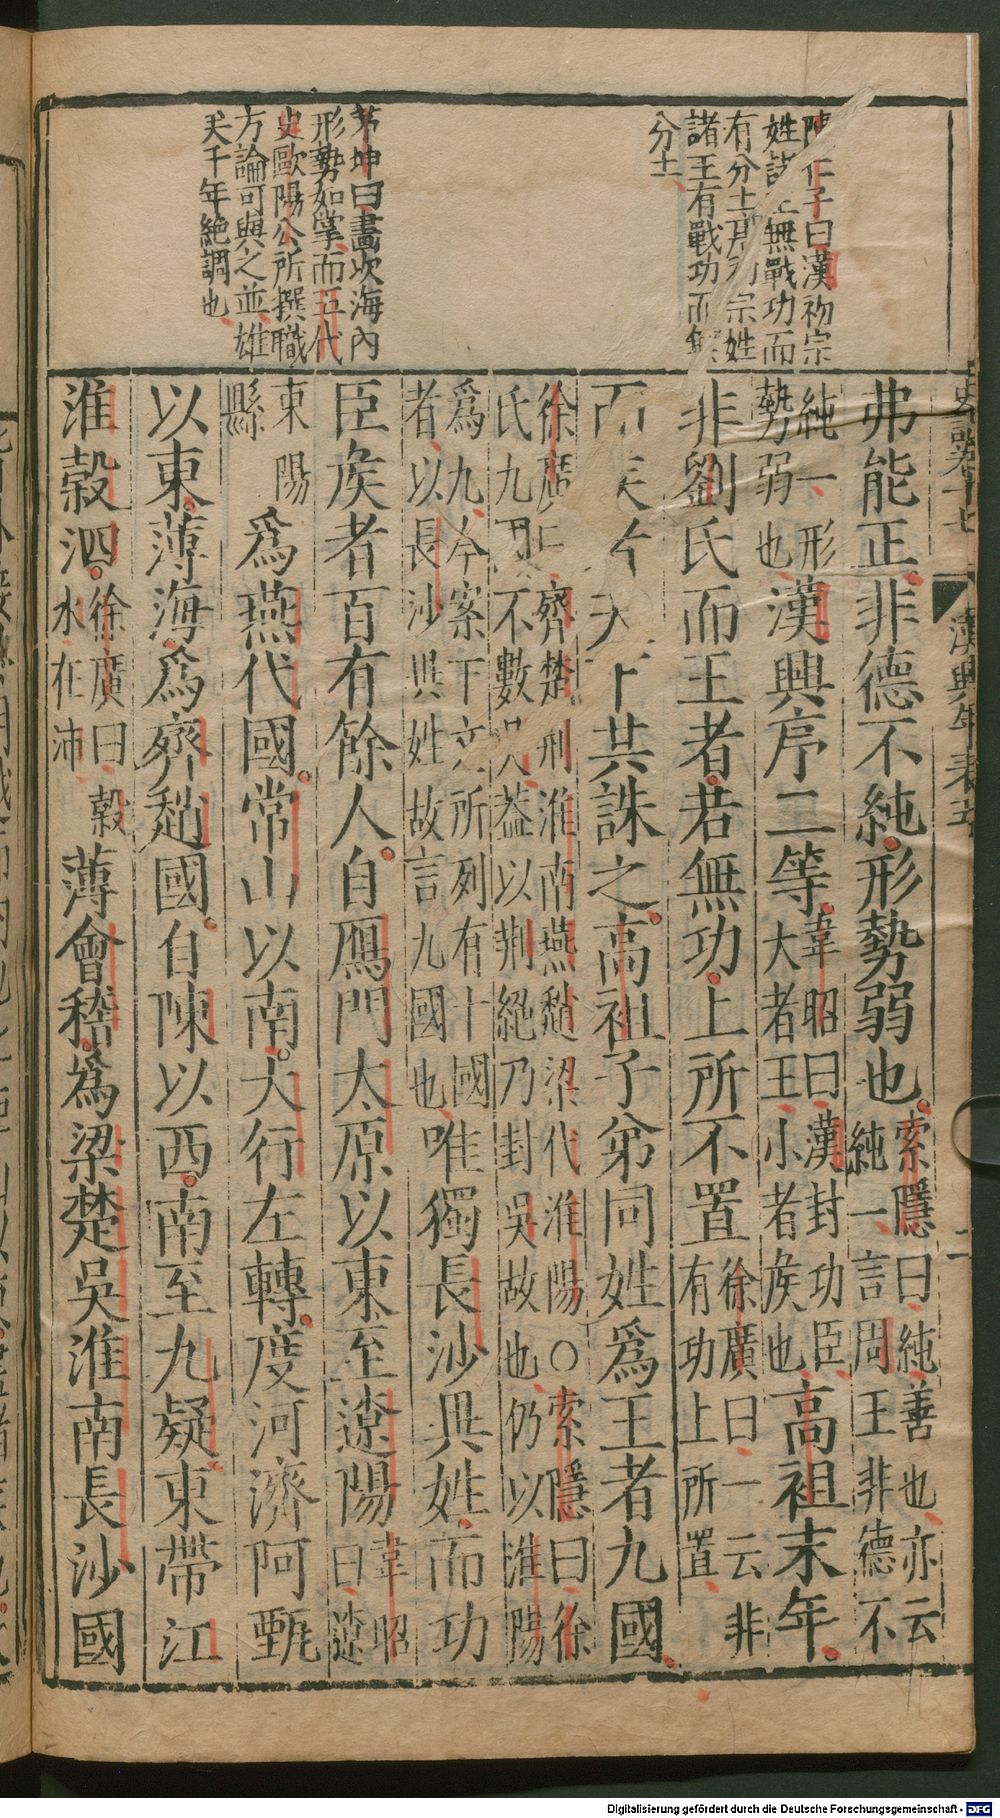 陳仁子曰漢初宗
姓諸王無戰功而
有分土其列宗姓
諸王有戰功而無
分土
茅坤曰畫次海內
形勢如掌而五代
史歐陽公所撰職
方論可與之並雄
天千年絕調也
弗能正非德不純形勢弱也索隱曰純善也亦云純一言周王非德不
純一形勢弱也漢興序二等韋昭曰漢封功臣大者王小者侯也高祖末年
非劉氏而王者若無功上所不置徐廣曰一云非有功上所置
而侯者天下共誅之高祖子弟同姓爲王者九國
徐廣曰齊楚荆淮南燕趙梁代淮陽○索隱曰徐氏九國不數吳蓋以荆絕乃封吳故也仍以淮陽
爲九今案下文所列有十國者以長沙異姓故言九國也唯獨長沙異姓而功
臣侯者百有餘人自鴈門太原以東至遼陽韋昭曰遼
東陽縣爲燕代國常山以南大行左轉度河濟阿甄
以東薄海爲齊趙國自陳以西南至九疑東帶江
淮穀泗徐廣曰穀水在沛薄會稽爲梁楚吳淮南長沙國
史記卷十七
漢興年表五
二
Digitalisierung gefördert durch die Deutsche Forschungsgemeinschaft - DFG